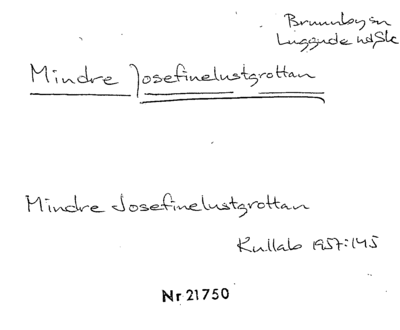 Brunnby sn
Luggude hd Sk
Mindre Josefinelustgrottan
Mindre Josefinelustgrottan
Kullab 1957:145
Nr 21750